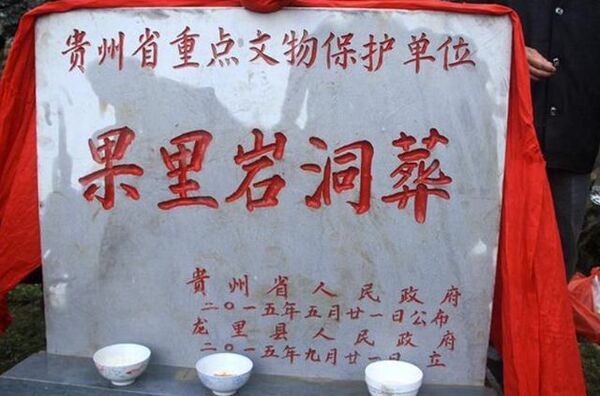 贵州省重点文物保护单位
果里岩洞葬
贵州省人民政府
二〇一五年五月廿一日公布
龙里县人民政府
二〇一五年九月廿一日立